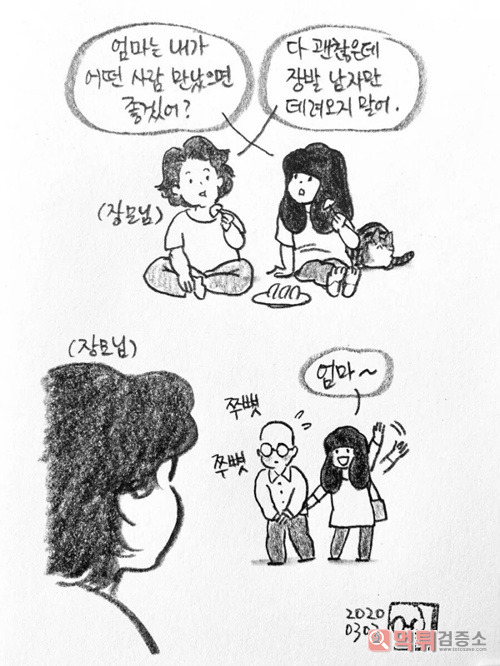 엄마는 내가
어떤 사람 만났으면
좋겠어?
다 괜찮은데
장발 남자만
데려오지 말어.
(장모님)
(장모님)
엄마~
쭈뼛
쭈뼛
2020
먹튀검증소